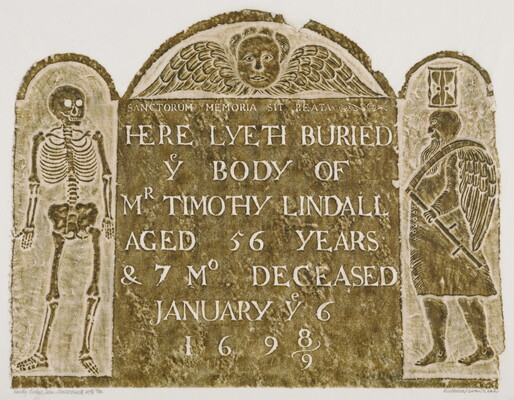 SANCTORUM MEMORIA SIT BEATA
HERE LYETH BURIED
Yᵉ BODY OF
Mᴿ TIMOTHY LINDALL
AGED 56 YEARS
& 7 Mᵒ DECEASED
JANUARY yᵉ 6
169 8/9